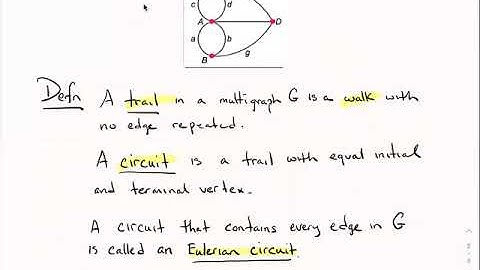 c d
A D
a b
B g
Defn A trail in a multigraph G is a walk with
no edge repeated.
A circuit is a trail with equal initial
and terminal vertex.
A circuit that contains every edge in G
is called an Eulerian circuit.